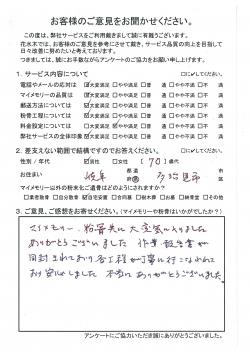 お客様のご意見をお聞かせください。
この度は、弊社サービスをご利用戴きまして誠に有難うございます。
花水木では、お客様のご意見を参考にさせて戴き、サービス品質の向上を目指して
日々改善に努めたいと考えております。
つきましては、誠にお手数ながらアンケートのご協力をお願い申し上げます。
1. サービス内容について □に✓してください。
電話やメールの応対は ☑大変満足 □やや満足 □普通 □やや不満 □不満
マイメモリーの品質は ☑大変満足 □やや満足 □普通 □やや不満 □不満
郵送方法について ☑大変満足 □やや満足 □普通 □やや不満 □不満
粉骨工程について ☑大変満足 □やや満足 □普通 □やや不満 □不満
料金設定について ☑大変満足 □やや満足 □普通 □やや不満 □不満
弊社サービスの全体印象 ☑大変満足 □やや満足 □普通 □やや不満 □不満
2. 差支えない範囲で結構ですのでお答えください。 □に✓してください。
性別/年代 ☑男性 □女性 (70)歳代
お住まい 岐阜 都道府県 多治見市 市
マイメモリー以外の粉末化ご遺骨はどのようにされますか?
3. ご意見、ご感想をお寄せください。(マイメモリーや粉骨はいかがでしたか?)
マイメモリー、粉骨共に大変気に入りました
ありがとうございました 作業報告書が
同封されており各工程が丁寧に行なわれており
安心しました 本当にありがとうございました。
アンケートにご協力いただき誠にありがとうございました。